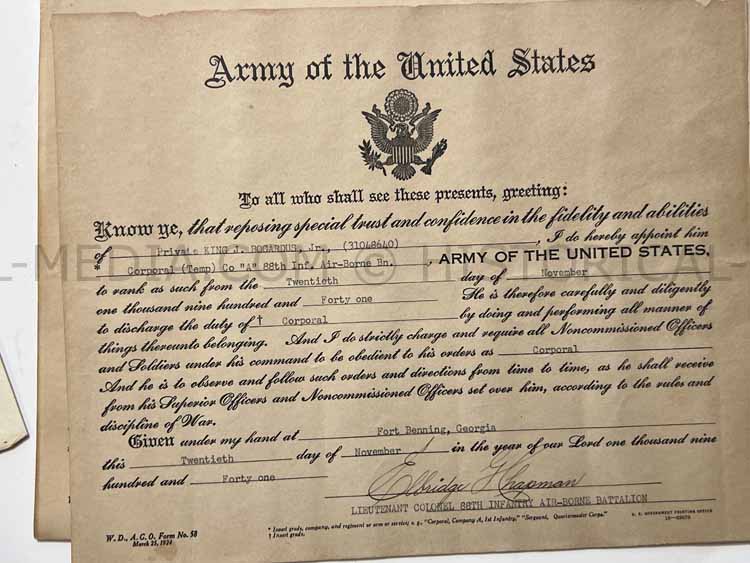 Army of the United States
To all who shall see these presents, greeting:
Know ye, that reposing special trust and confidence in the fidelity and abilities
*of Private KING J. BOGARDUS, Jr., (31048640) , I do hereby appoint him
Corporal (Temp) Co "A" 88th Inf. Air-Borne Bn. , ARMY OF THE UNITED STATES,
to rank as such from the Twentieth day of November
one thousand nine hundred and Forty one He is therefore carefully and diligently
to discharge the duty of † Corporal by doing and performing all manner of
things thereunto belonging. And I do strictly charge and require all Noncommissioned Officers
and Soldiers under his command to be obedient to his orders as Corporal
And he is to observe and follow such orders and directions from time to time, as he shall receive
from his Superior Officers and Noncommissioned Officers set over him, according to the rules and
discipline of War.
Given under my hand at Fort Benning, Georgia
this Twentieth day of November in the year of our Lord one thousand nine
hundred and Forty one
Elbridge G Chapman
LIEUTENANT COLONEL 88TH INFANTRY AIR-BORNE BATTALION
W. D., A. G. O. Form No. 58
March 25, 1924
* Insert grade, company, and regiment or arm or service; e. g., "Corporal, Company A, 1st Infantry," "Sergeant, Quartermaster Corps."
† Insert grade.
U. S. GOVERNMENT PRINTING OFFICE